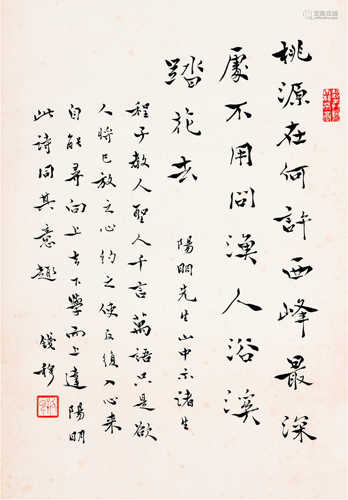 桃源在何許西峰最深
處不用問漁人沿溪
踏花去
陽明先生山中示諸生
程子教人聖人千言萬語只是欲
人將已放之心約之使反復入心來
自能尋向上去下學而上達陽明
此詩同其意趣
錢穆